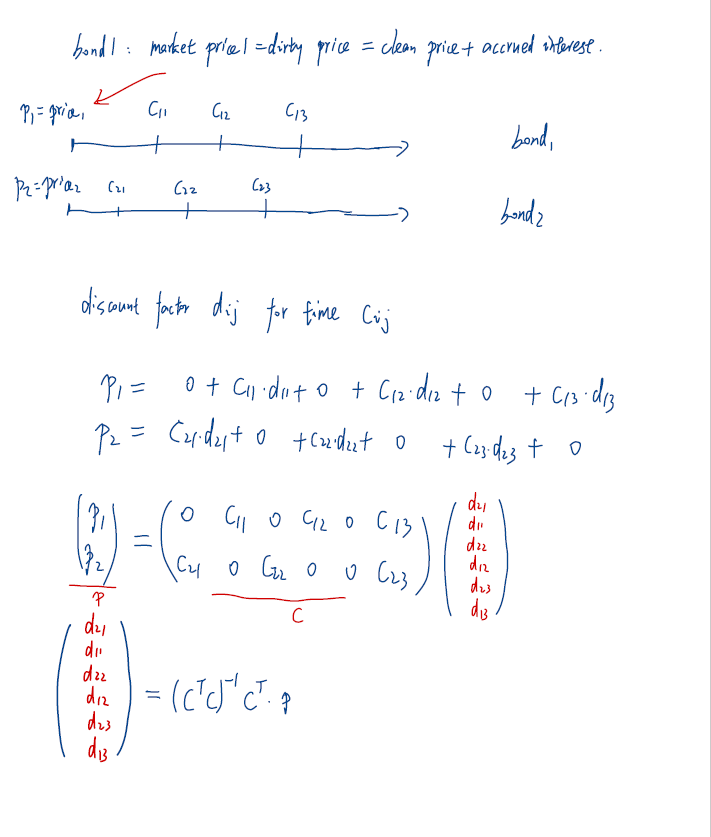 bond 1 : market price 1 = dirty price = clean price + accrued interest.
P₁ = price₁ C₁₁ C₁₂ C₁₃
bond₁
P₂ = price₂ C₂₁ C₂₂ C₂₃
bond₂
discount factor dᵢⱼ for time Cᵢⱼ
P₁ = 0 + C₁₁·d₁₁ + 0 + C₁₂·d₁₂ + 0 + C₁₃·d₁₃
P₂ = C₂₁·d₂₁ + 0 + C₂₂·d₂₂ + 0 + C₂₃·d₂₃ + 0
(P₁ P₂) = (0 C₁₁ 0 C₁₂ 0 C₁₃
C₂₁ 0 C₂₂ 0 0 C₂₃) (d₂₁ d₁₁ d₂₂ d₁₂ d₂₃ d₁₃)
P C
(d₂₁ d₁₁ d₂₂ d₁₂ d₂₃ d₁₃) = (CᵀC)⁻¹ Cᵀ · P